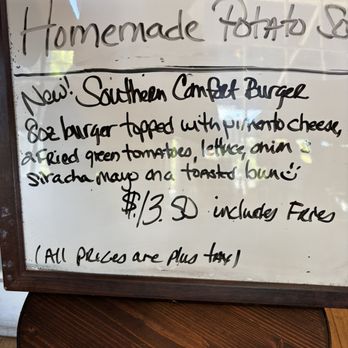 Homemade Potato So
New! Southern Comfort Burger
8oz burger topped with pimento cheese,
2 Fried green tomatoes, lettuce, onion &
siracha mayo on a toasted bun
$13.50 includes Fries
(All prices are plus tax)